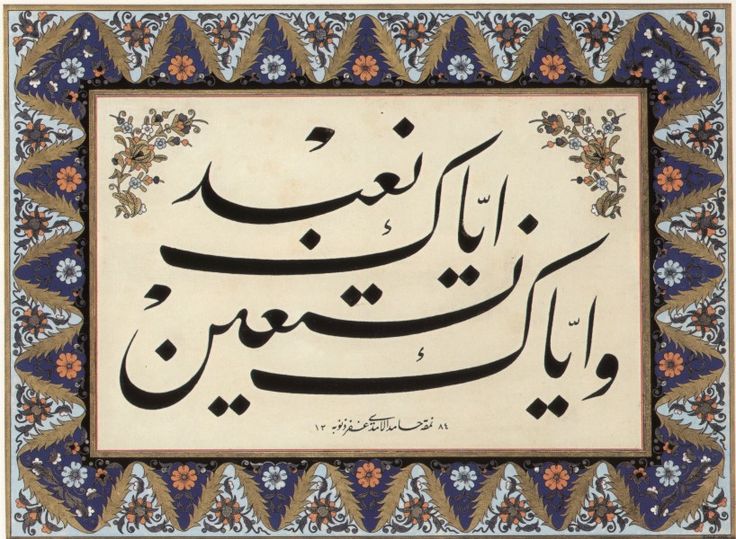 اياك نعبد
واياك نستعين
نمقه حامد الآمدي غفر ذنوبه ١٣٨٤